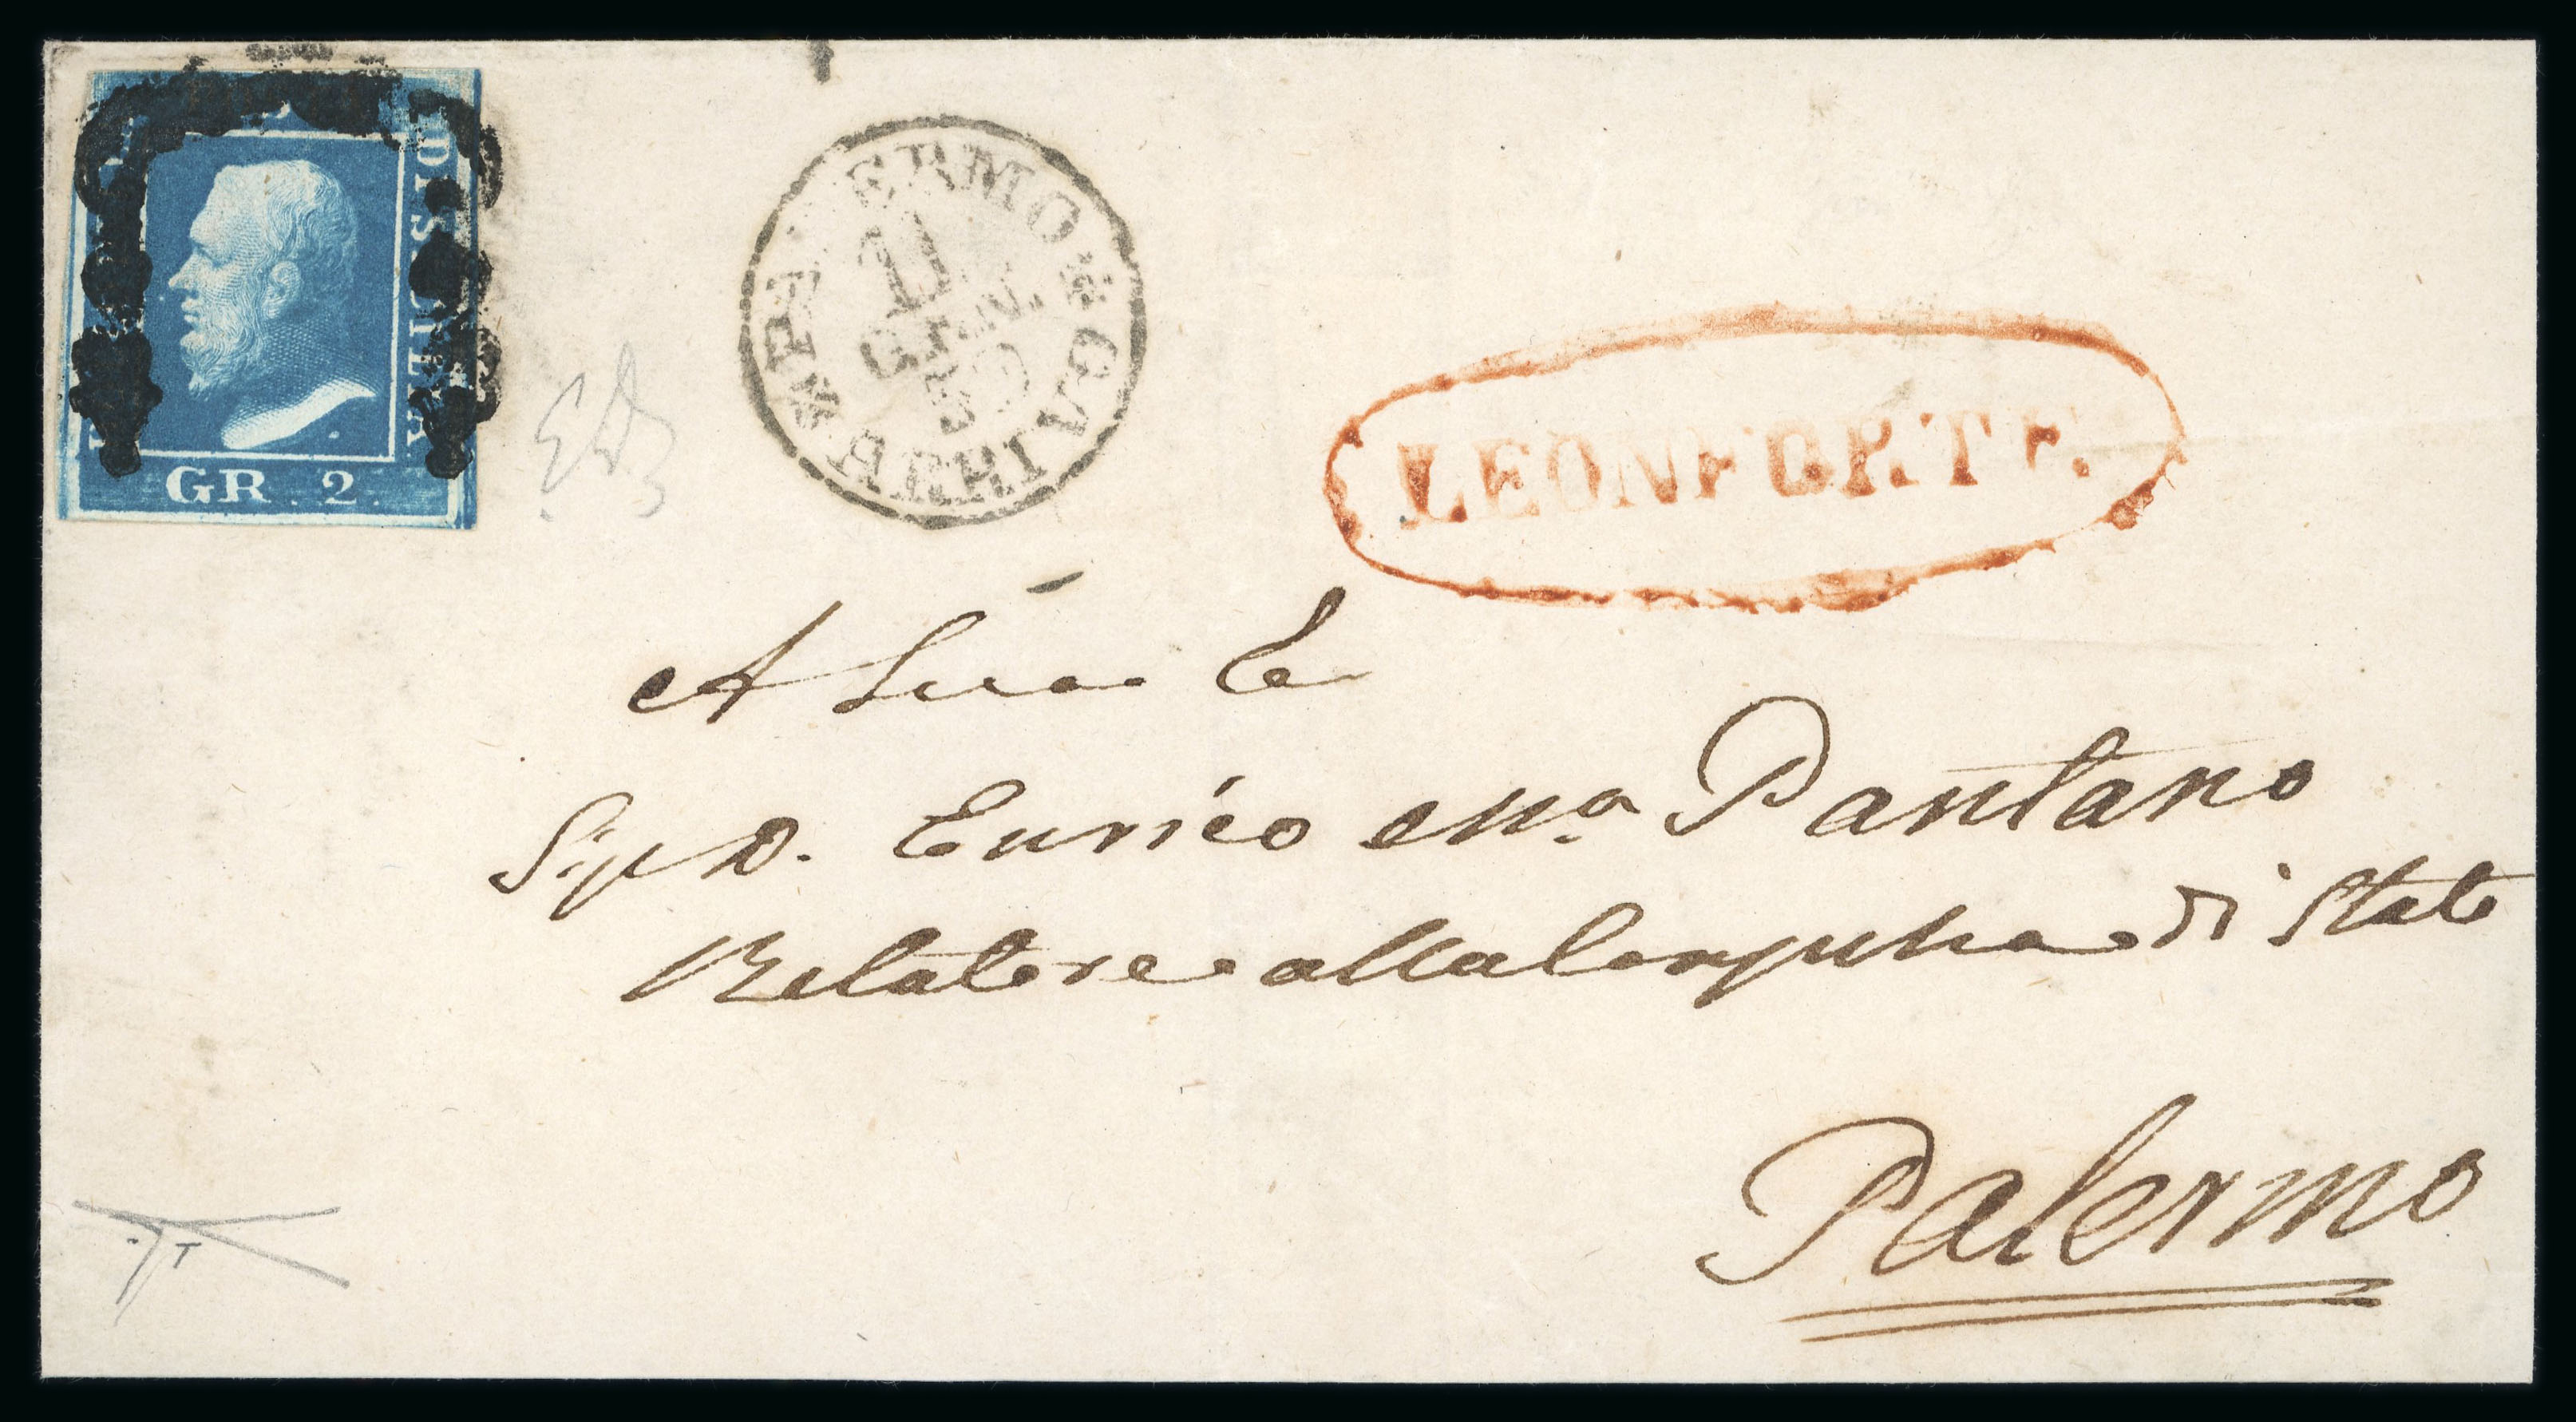 DI SICILIA
GR. 2.
PALERMO * GALERIA *
11
GEN.
LEONFORTE.
A Sua E
Sig. D. Enrico Ma. Pantano
Relatore alla Consulta di Stato
Palermo